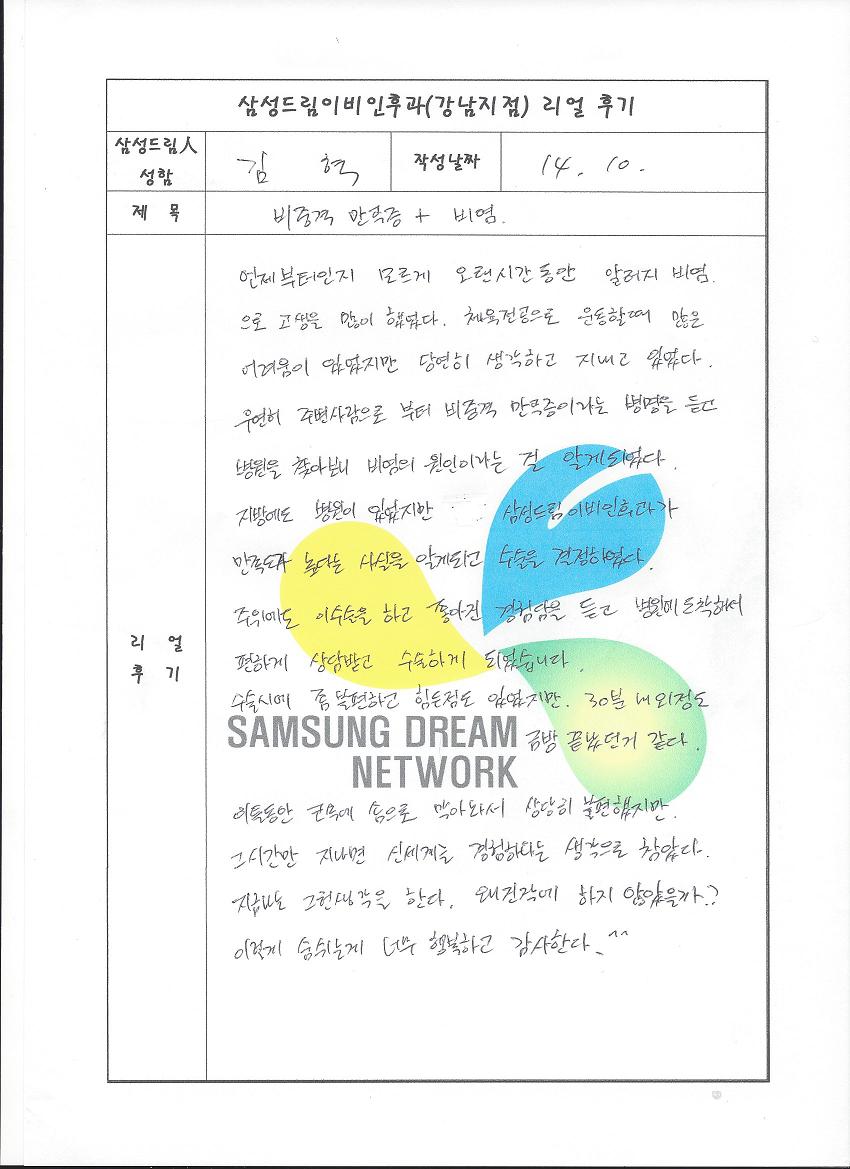 삼성드림이비인후과(강남지점) 리얼 후기
삼성드림人 성함
김 혁
작성날짜
14. 10.
제 목
비중격 만곡증 + 비염.
리 얼 후 기
언제부터인지 모르게 오랜시간동안 알러지 비염.
으로 고생을 많이 했었다. 체육전공으로 운동할때 많은
어려움이 있었지만 당연히 생각하고 지내고 있었다.
우연히 주변사람으로 부터 비중격 만곡증이라는 병명을 듣고
병원을 찾아보니 비염의 원인이라는 걸 알게되었다.
지방에도 병원이 있었지만 삼성드림이비인후과가
만족도가 높다는 사실을 알게되고 수술을 결정하였다.
주위에도 이수술을 하고 좋아진 경험담을 듣고 병원에 도착해서
편하게 상담받고 수술하게 되었습니다.
수술시에 좀 불편하고 힘든점도 있었지만. 30분 내외정도
금방 끝났던거 같다.
SAMSUNG DREAM
NETWORK
이틀동안 콧속에 솜으로 막아놔서 상당히 불편했지만.
그시간만 지나면 신세계를 경험하다는 생각으로 참았다.
지금도 그런생각을 한다. 왜진작에 하지 않았을까?
이렇게 숨쉬는게 너무 행복하고 감사한다. ^^